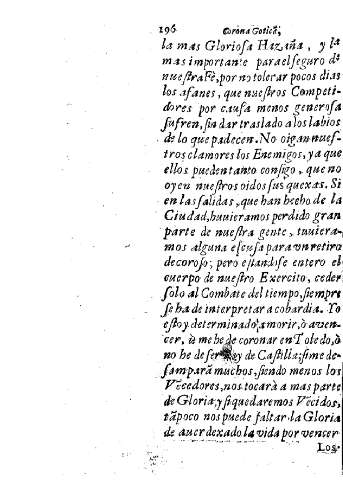 196 Corona Gotica,
la mas Gloriosa Hazaña, y la
mas importante para el seguro dẽ
nuestra Fè, por no tolerar pocos dias
los afanes, que nuestros Competi-
dores por causa menos generosa
sufren, sin dar traslado a los labios
de lo que padecen. No oigan nues-
tros clamores los Enemigos, ya que
ellos pueden tanto consigo, que no
oyen nuestros oidos sus quexas. Si
en las salidas, que han hecho de la
Ciudad, huvieramos perdido gran
parte de nuestra gente, tuviera-
mos alguna escusa para vn retiro
decoroso; pero estandose entero el
cuerpo de nuestro Exercito, ceder
solo al Combate del tiempo, siempre
se ha de interpretar a cobardia. Yo
estoy determinado, a morir, ò a ven-
cer, ò me he de coronar en Toledo, ò
no he de ser Rey de Castilla; si me de-
samparã muchos, siendo menos los
Vẽcedores, nos tocarà a mas parte
de Gloria; y si quedaremos Vẽcidos,
tãpoco nos puede faltar la Gloria
de auer dexado la vida por vencer
Los